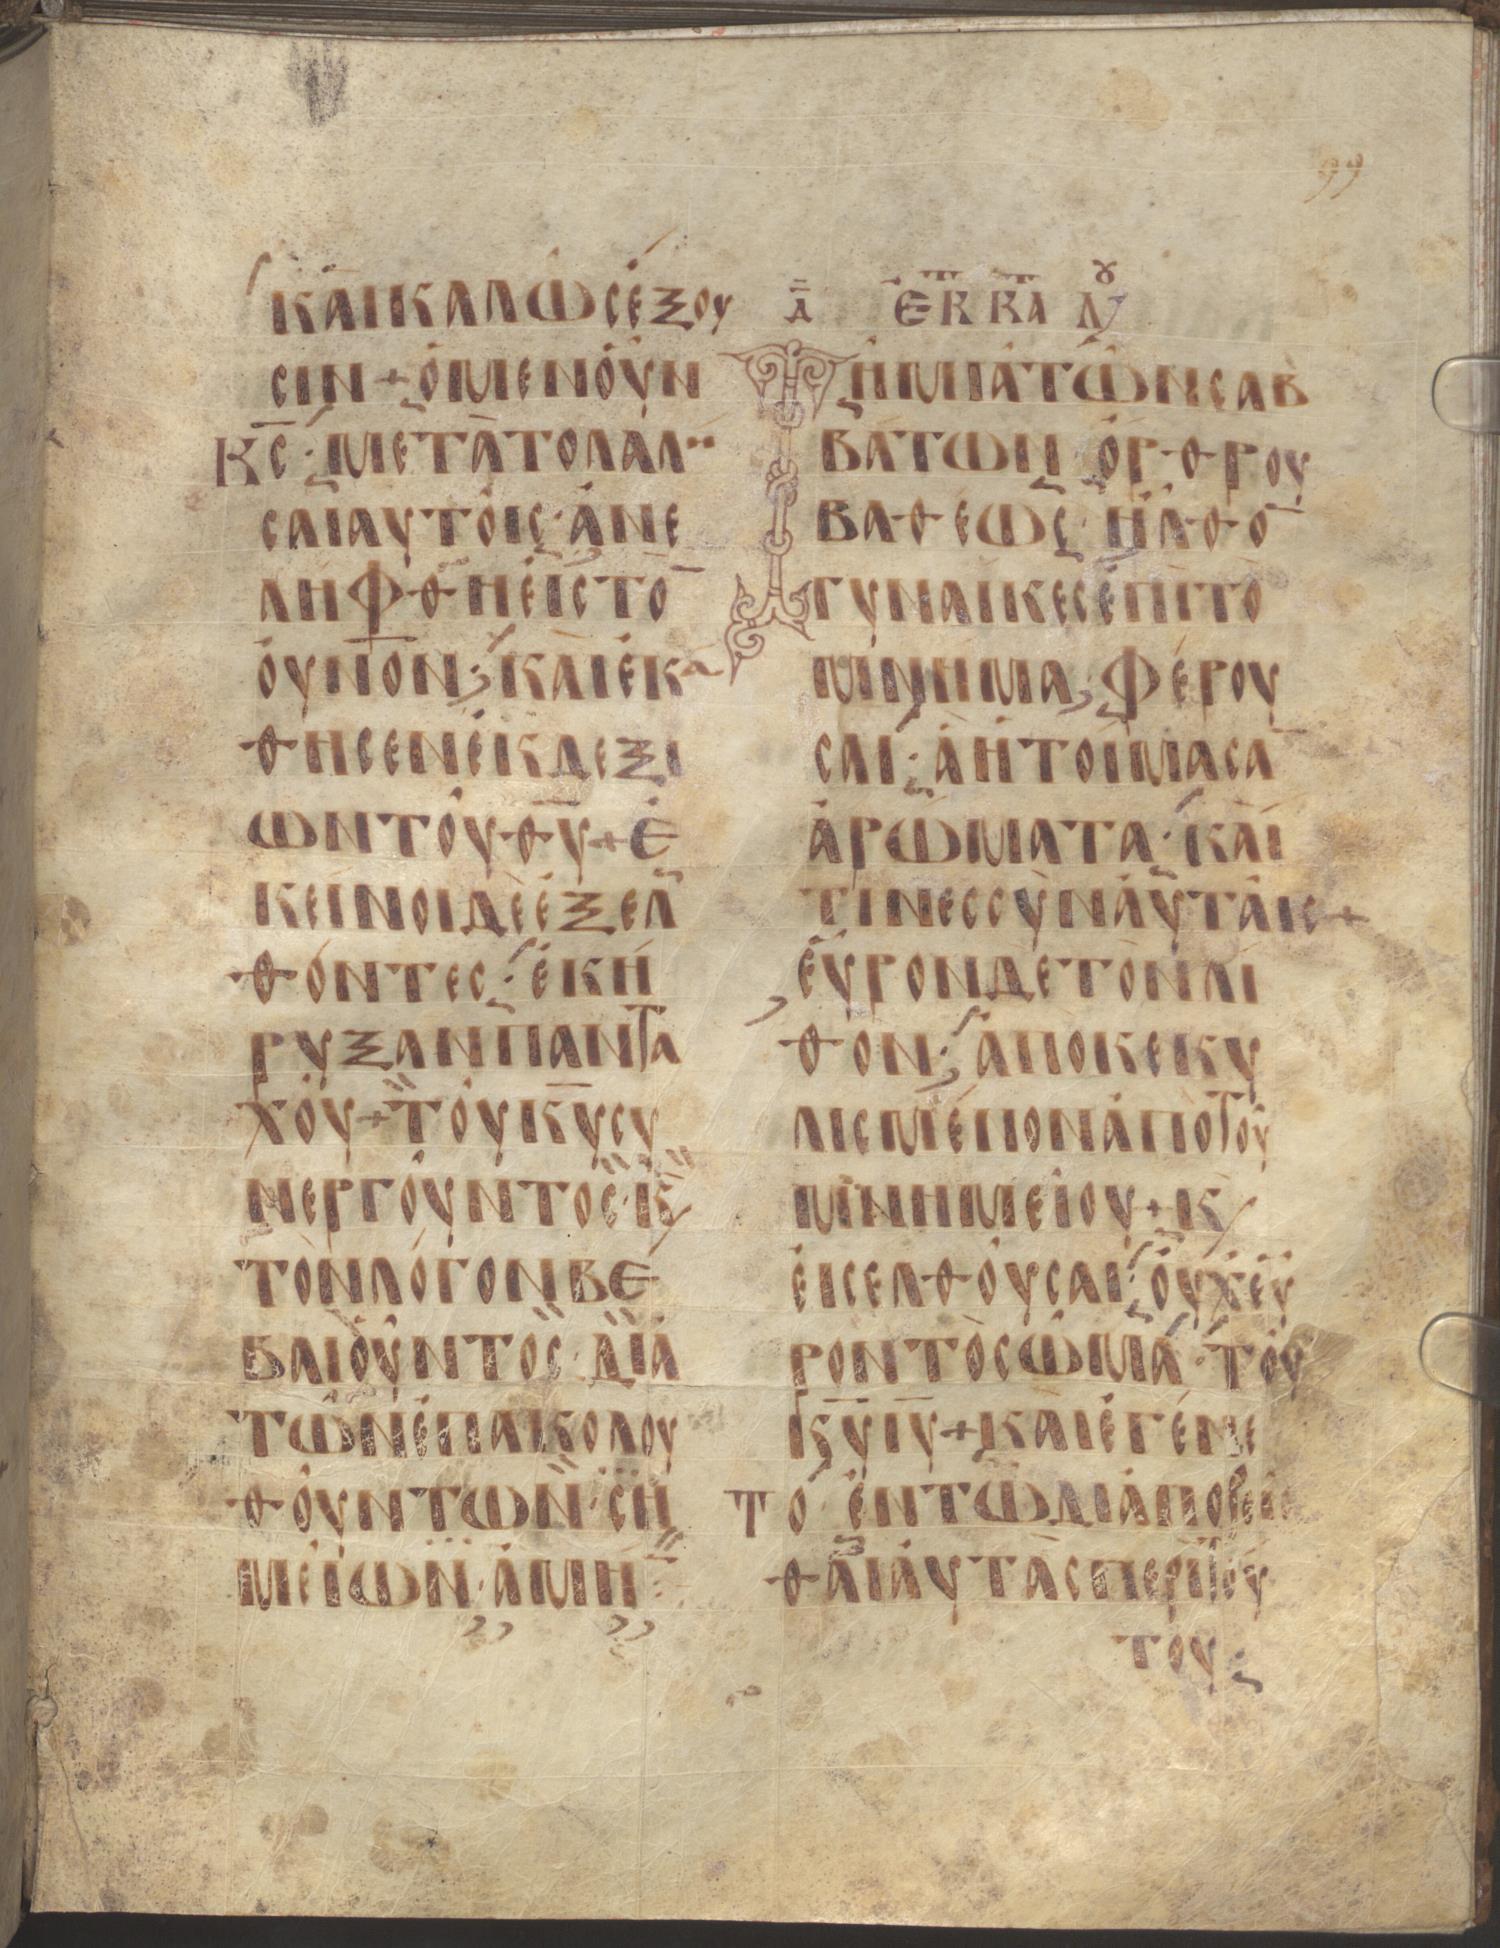 99
ΚΑΙΚΑΛΩΣΕΞΟΥ
ΣΙΝ + ΟΜΕΝΟΥΝ
ΚΣ · ΜΕΤΑΤΟΛΑΛΗ
ΣΑΙΑΥΤΟΙΣ · ΑΝΕ
ΛΗΦΘΗΕΙΣΤΟ̄
ΟΥΝΟΝ · ΚΑΙΕΚΑ
ΘΗΣΕΝΕΚΔΕΞΙ
ΩΝΤΟΥΘΥ + Ε
ΚΕΙΝΟΙΔΕΕΞΕΛ
ΘΟΝΤΕΣ · ΕΚΗ
ΡΥΞΑΝΠΑΝΤΑ
ΧΟΥ + ΤΟΥΚΥΣΥ
ΝΕΡΓΟΥΝΤΟΣ · Κ/
ΤΟΝΛΟΓΟΝΒΕ
ΒΑΙΟΥΝΤΟΣ · ΔΙΑ
ΤΩΝΕΠΑΚΟΛΟΥ
ΘΟΥΝΤΩΝ · ΣΗ
ΜΕΙΩΝ · ΑΜΗ̄
Δ ΕΚ ΚΑ ΛΥ
ΤΗΜΙΑΤΩΝΣΑΒ
ΒΑΤΩΝ ΟΡΘΡΟΥ
ΒΑΘΕΩΣ · ΗΛΘΟ̄
ΓΥΝΑΙΚΕΣΕΠΙΤΟ
ΜΝΗΜΑ, ΦΕΡΟΥ
ΣΑΙ · ΑΗΤΟΙΜΑΣᾹ
ΑΡΩΜΑΤΑ · ΚΑΙ
ΤΙΝΕΣΣΥΝΑΥΤΑΙΣ +
ΕΥΡΟΝΔΕΤΟΝΛΙ
ΘΟΝ · ΑΠΟΚΕΚΥ
ΛΙΣΜΕΝΟΝΑΠΟΤΟΥ
ΜΝΗΜΕΙΟΥ + Κ/
ΕΙΣΕΛΘΟΥΣΑΙ · ΟΥΧΕΥ
ΡΟΝΤΟΣΩΜΑ · ΤΟΥ
ΚΥΙΥ + ΚΑΙΕΓΕΝΕ
ΤΟ ΕΝΤΩΔΙΑΠΟΡΕΙΣ
ΘΑΙΑΥΤΑΣΠΕΡΙΤΟΥ
ΤΟΥ ·